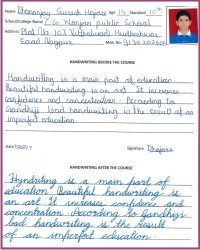 Name Dhananjay Suresh Hajare Age 14 Standard 10th
School/College Name Z.C. Wanjari public School
Address Plot No. 103 Vitthalwadi Hudkeshwar
Road Nagpur Mob. No.
HANDWRITING BEFORE THE COURSE
Handwriting is a main part of education
Beautiful handwriting is an art. It increases
confidence and concentration. According to
Gandhiji bad handwriting is the result of an
imperfect education.
Date Signature DHajare
HANDWRITING AFTER THE COURSE
Handwriting is a main part of
education. Beautiful handwriting is
an art It increases confidence and
concentration According to Gandhiji
bad handwriting is the result
of an imperfect education